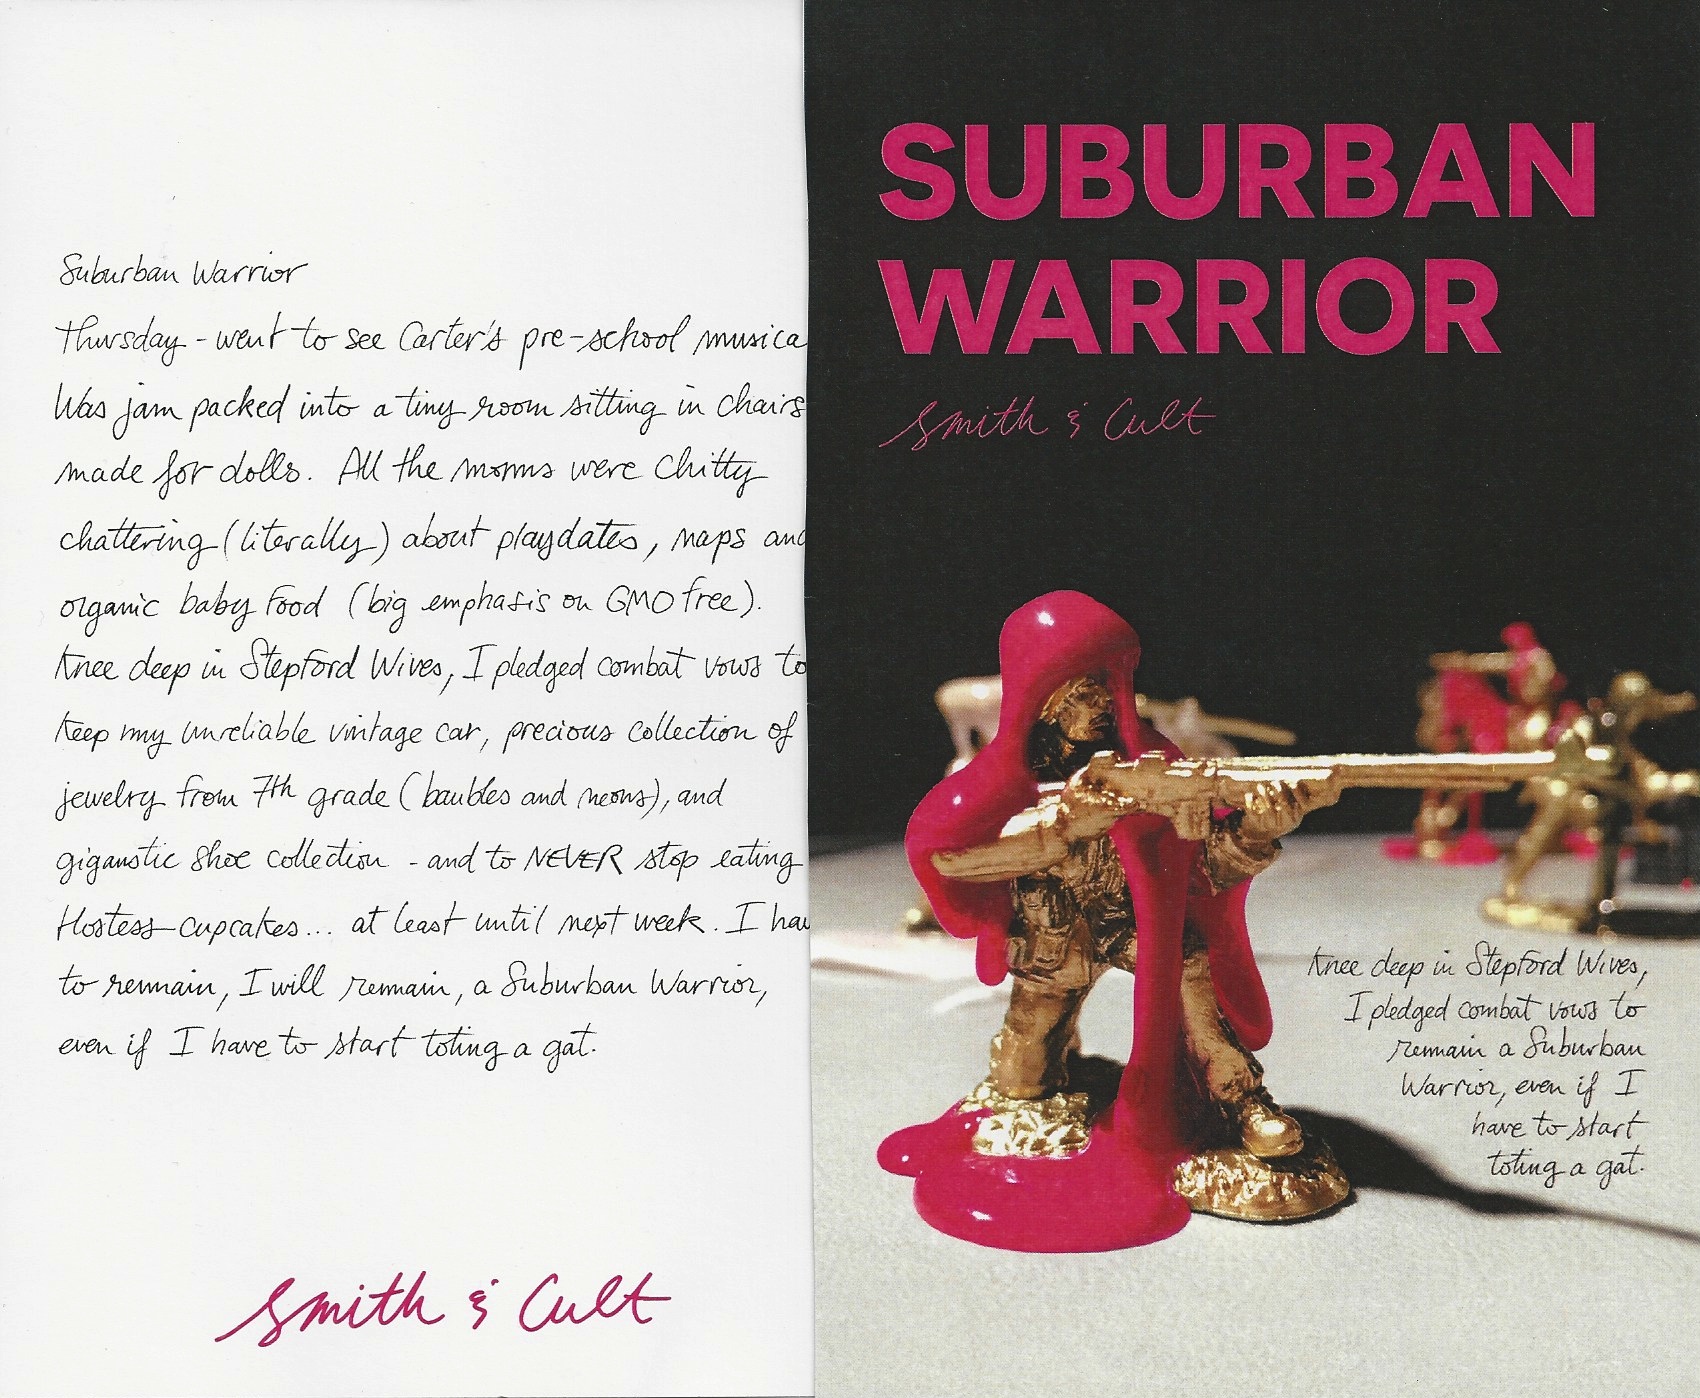 Suburban Warrior
Thursday - went to see Carter's pre-school musica
Was jam packed into a tiny room sitting in chairs
made for dolls. All the moms were chitty
chattering (literally) about playdates, naps and
organic baby food (big emphasis on GMO free).
Knee deep in Stepford Wives, I pledged combat vows to
keep my unreliable vintage car, precious collection of
jewelry from 7th grade (baubles and neons), and
gigantic shoe collection - and to NEVER stop eating
Hostess cupcakes... at least until next week. I hav
to remain, I will remain, a Suburban Warrior,
even if I have to start toting a gat.
Smith & Cult
SUBURBAN
WARRIOR
Smith & Cult
Knee deep in Stepford Wives,
I pledged combat vows to
remain a Suburban
Warrior, even if I
have to start
toting a gat.